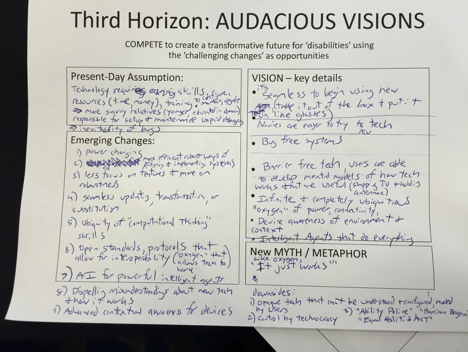 Third Horizon: AUDACIOUS VISIONS
COMPETE to create a transformative future for 'disabilities' using
the 'challenging changes' as opportunities
Present-Day Assumption:
Technology requires skills,
resources (time, money), training
→ more savvy relatives (younger,
responsible for setup & maintenance
→ inevitability of bugs
Emerging Changes:
1) power changing
2) more efficient robust ways of
systems
3) less focus on features & more on
robustness
4) seamless updating, transformation, or
substitution
5) Ubiquity of "computational thinking"
skills
6) Open standards, protocols that
allow for interoperability ("oxygen" that
allows tech to
work
7) A.I. for powerful intelligent agents
8) Dispelling misunderstandings about new tech
& how it works
9) Advanced contextual awareness for devices
VISION – key details
• it's
Seamless to begin using new
(take it out of the box & put it
on like glasses)
Novices are eager to try to tech
new
• Bug free systems
• Barrier free tech users are able
to develop mental models of how tech
works that are useful
• Infinite & completely ubiquitous
"oxygen" of power, connectivity.
• Device awareness of environment &
context
• Intelligent Agents that do everything
New MYTH / METAPHOR
Like oxygen,
"It just works"
downsides:
1) opaque tech that can't be understood &
by users
2) Control by technocracy
3) "Ability Police"
"Equal Abilities ACT"